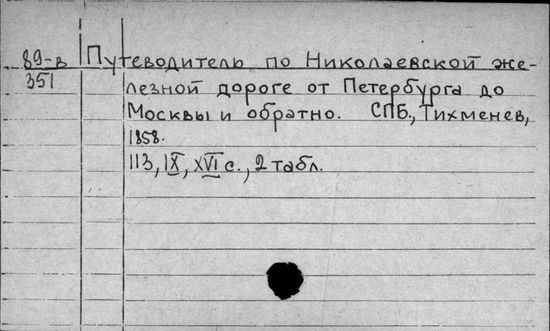 89-в Путеводитель по Николаевской же-
351 лезной дороге от Петербурга до
Москвы и обратно. СПБ., Тихменев,
1858.
113, IX, XVI с., 2 табл.